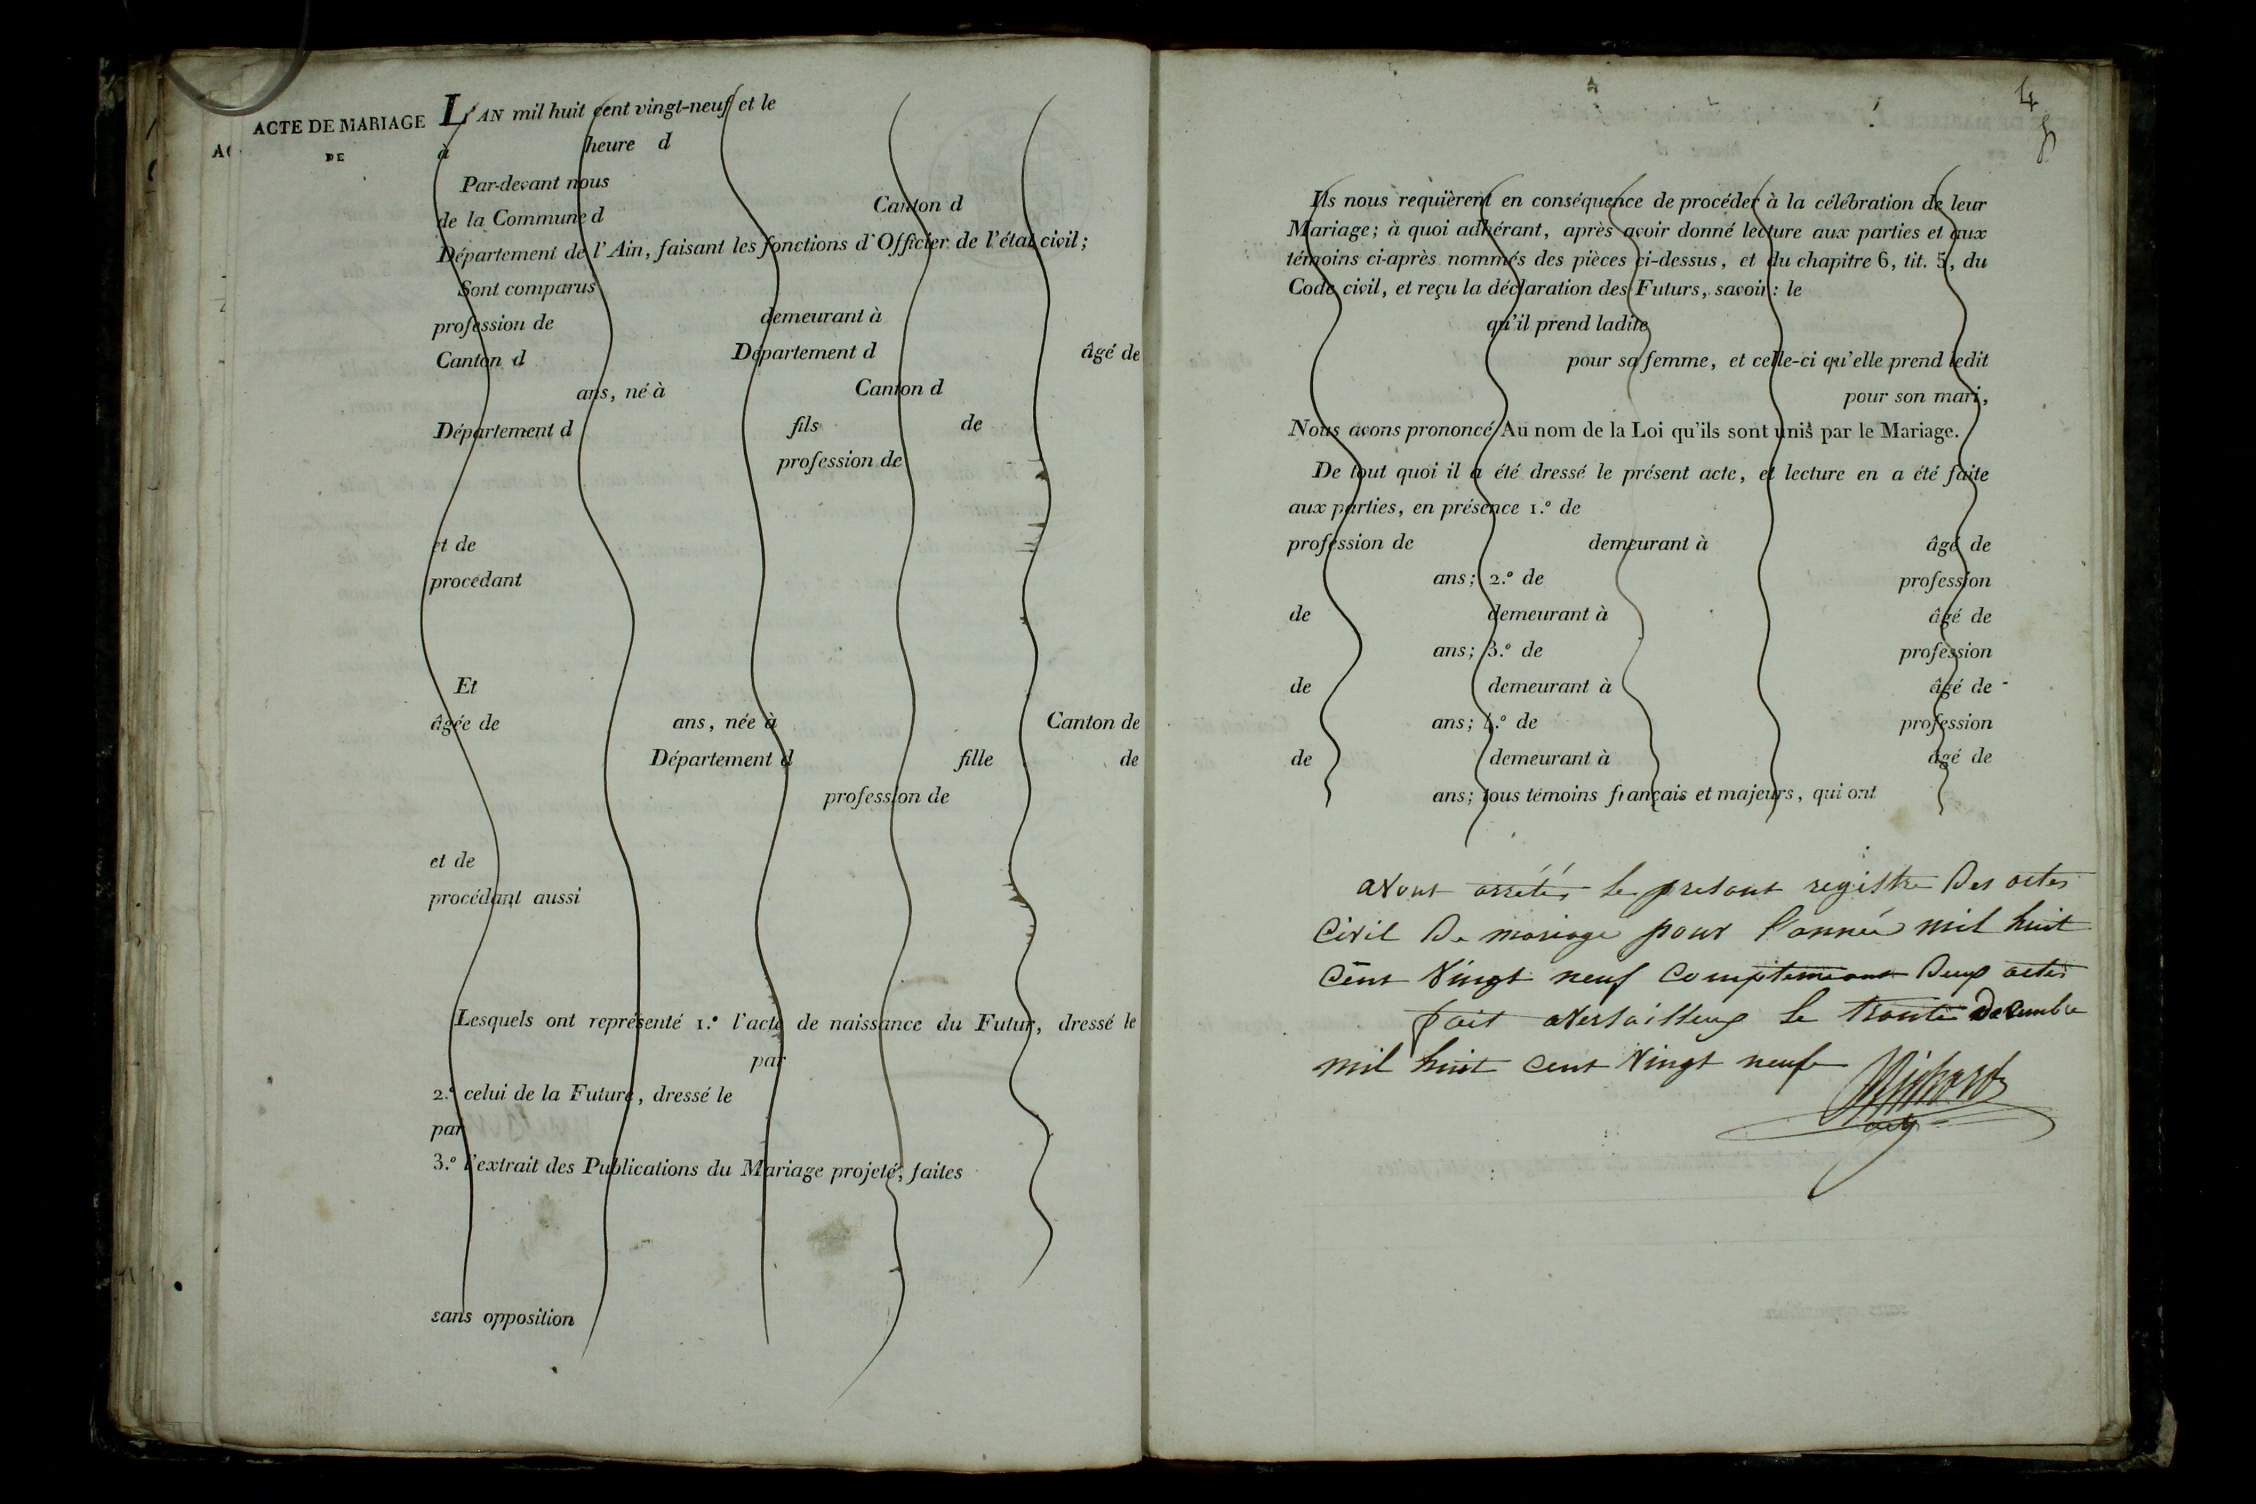 ACTE DE MARIAGE
DE
L'AN mil huit cent vingt-neuf et le
à heure d
Par-devant nous
de la Commune d Canton d
Département de l'Ain, faisant les fonctions d'Officier de l'état civil;
Sont comparus
profession de demeurant à
Canton d Département d âgé de
ans, né à Canton d
Département d fils de
profession de
et de
procédant
Et
âgée de ans, née à Canton de
Département d fille de
profession de
et de
procédant aussi
Lesquels ont représenté 1.º l'acte de naissance du Futur, dressé le
par
2.º celui de la Future, dressé le
par
3.º l'extrait des Publications du Mariage projeté, faites
sans opposition
4
Ils nous requièrent en conséquence de procéder à la célébration de leur
Mariage; à quoi adhérant, après avoir donné lecture aux parties et aux
témoins ci-après nommés des pièces ci-dessus, et du chapitre 6, tit. 5, du
Code civil, et reçu la déclaration des Futurs, savoir: le
qu'il prend ladite
pour sa femme, et celle-ci qu'elle prend ledit
pour son mari,
Nous avons prononcé Au nom de la Loi qu'ils sont unis par le Mariage.
De tout quoi il a été dressé le présent acte, et lecture en a été faite
aux parties, en présence 1.º de
profession de demeurant à âgé de
ans; 2.º de profession
de demeurant à âgé de
ans; 3.º de profession
de demeurant à âgé de
ans; 4.º de profession
de demeurant à âgé de
ans; tous témoins français et majeurs, qui ont
avont arrétés le presant registre des actes
civil de mariage pour l'année mil huit
cent vingt neuf deux actes
fait aversailleux le trante decembre
mil huit cent vingt neufe